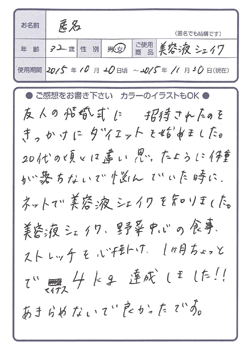 お名前 匿名
(匿名でも結構です)
年齢 32歳 性別 男・女 ご使用商品 美容液シェイク
使用期間 2015年10月20日頃〜2015年11月30日(現在)
●ご感想をお書き下さい カラーのイラストもOK●
友人の結婚式に招待されたのを
きっかけにダイエットを始めました。
20代の頃とは違い思ったように体重
が落ちないで悩んでいた時に、
ネットで美容液シェイクを知りました。
美容液シェイク、野菜中心の食事、
ストレッチを心掛け、1ヵ月ちょっと
でマイナス4kg達成しました!!
あきらめないで良かったです。